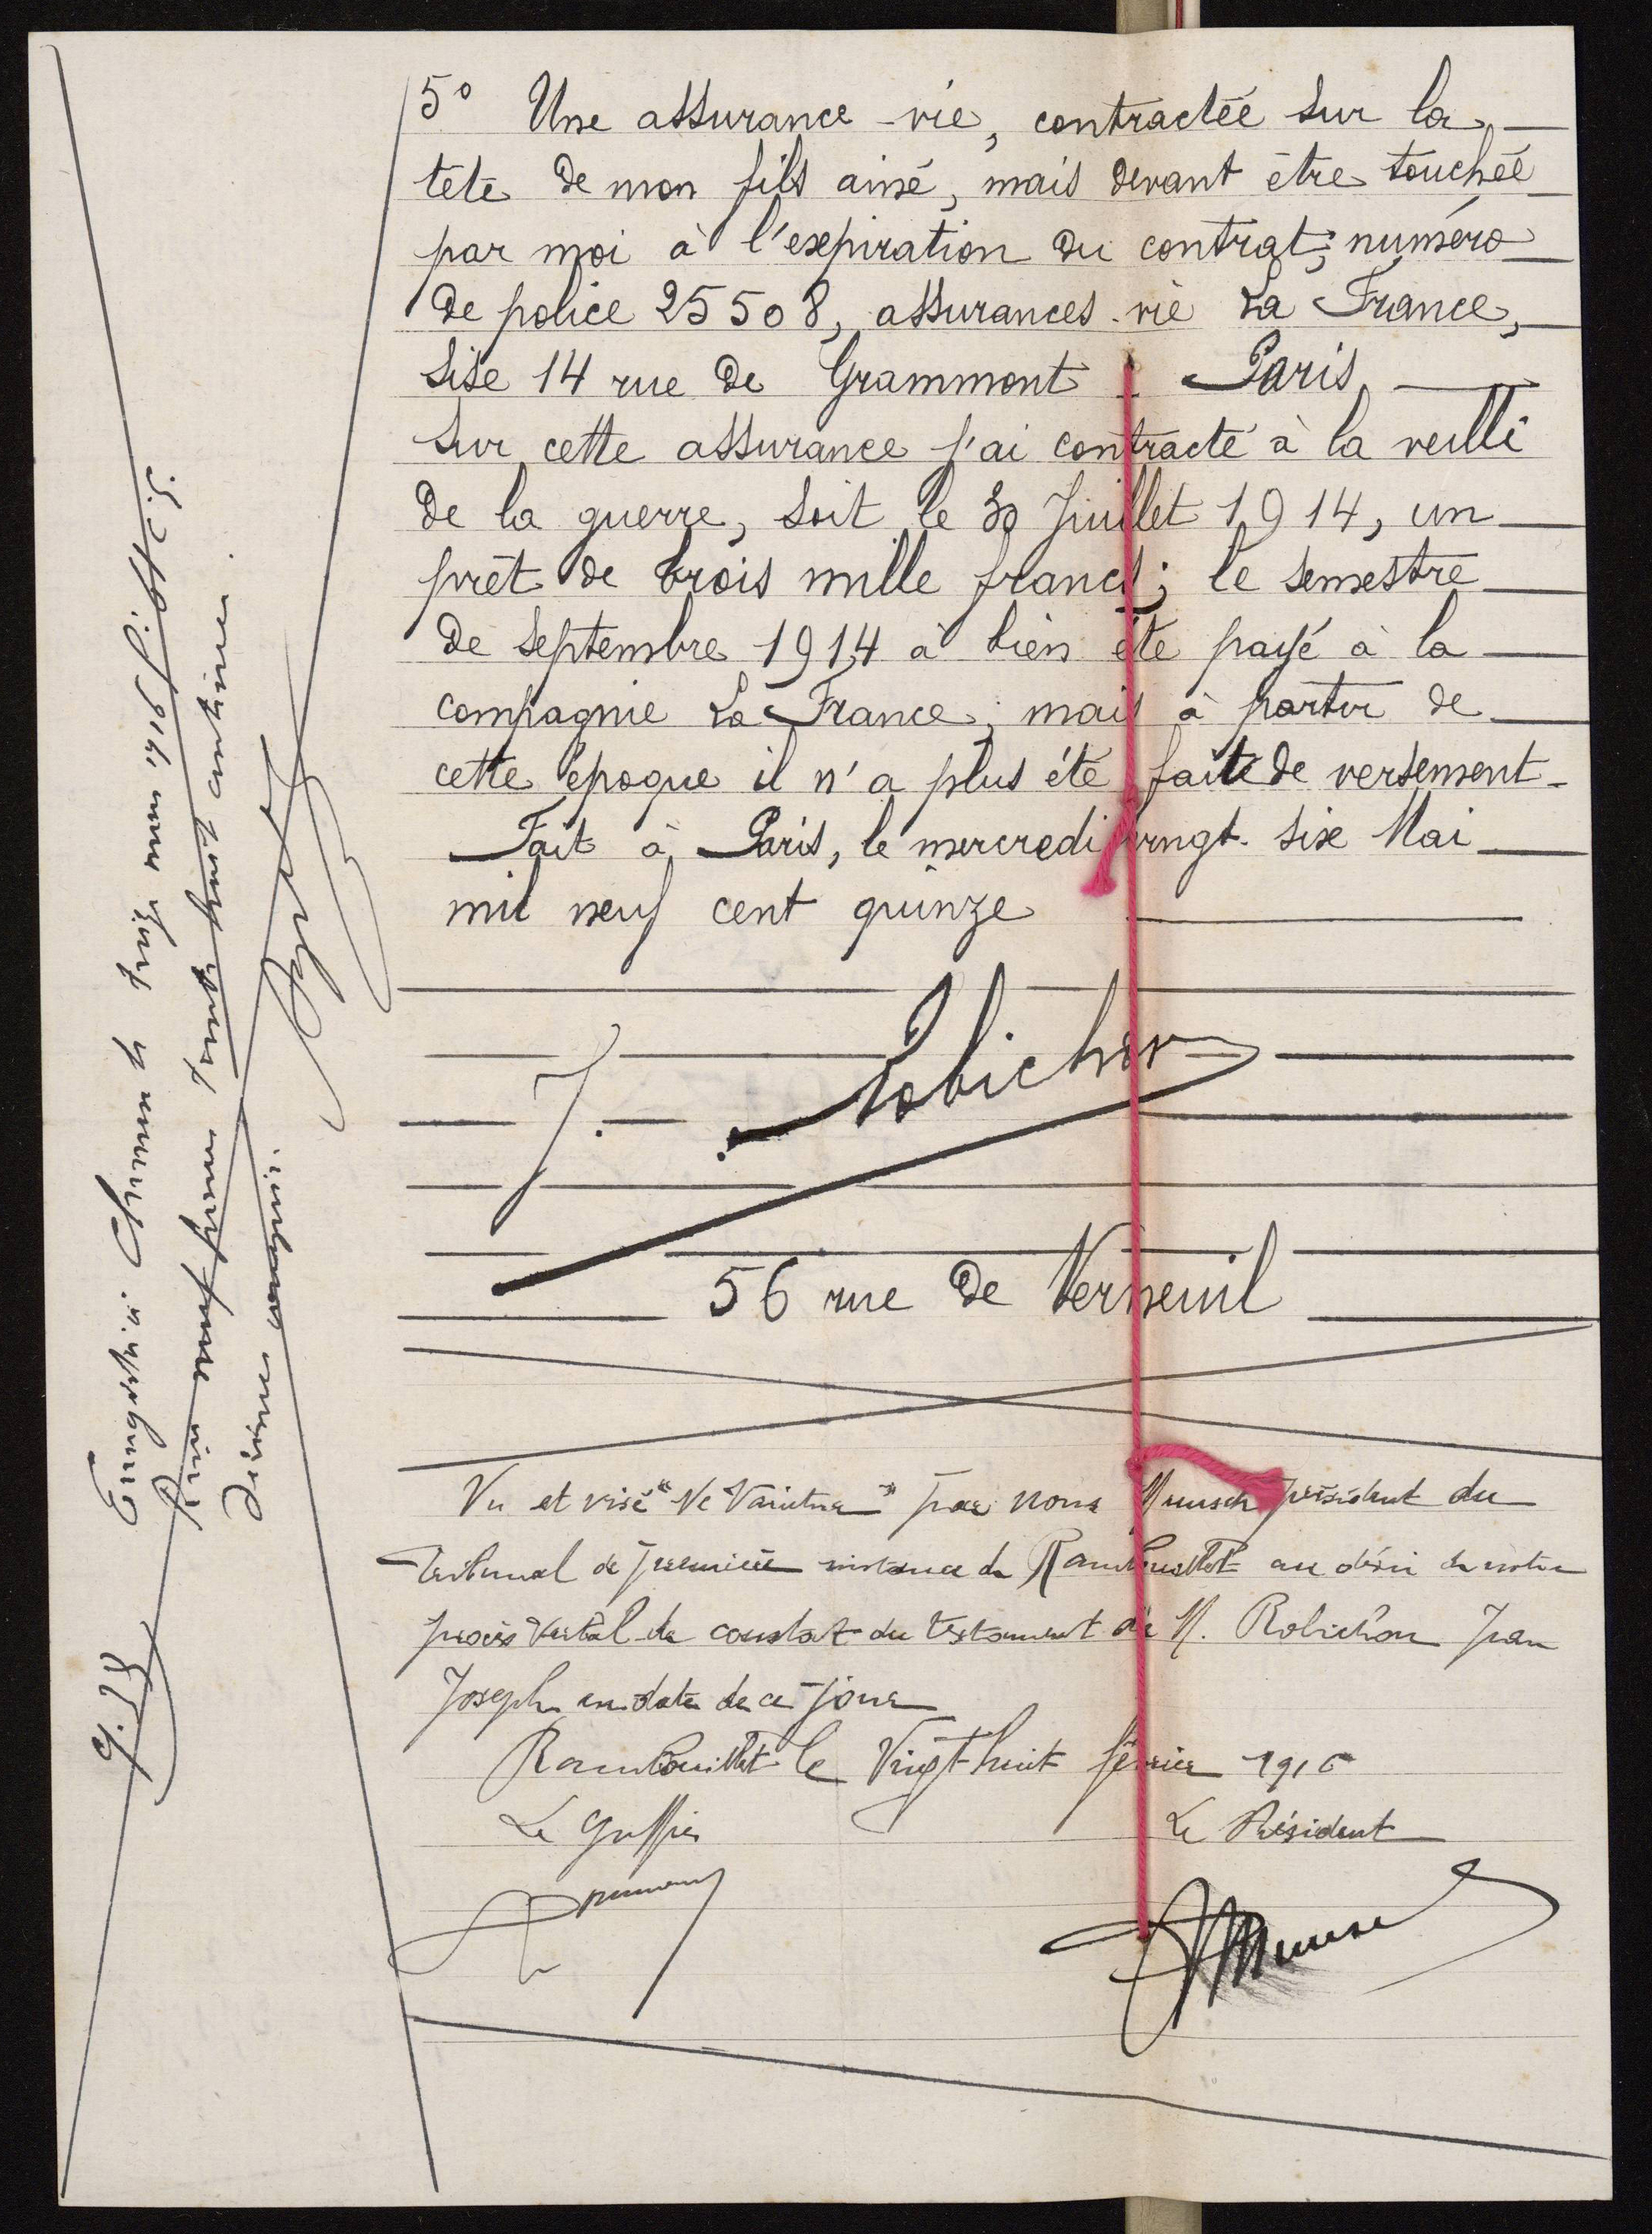 5° Une assurance-vie, contractée sur la
tête de mon fils ainé, mais devant être touchée
par moi à l'expiration du contrat; numéro
de police 25508, assurances-vie La France,
sise 14 rue de Grammont Paris
Sur cette assurance j'ai contracté à la veille
de la guerre, soit le 30 Juillet 1914, un
prêt de trois mille francs; le semestre
de Septembre 1914 a bien été payé à la
compagnie La France; mais à partir de
cette époque il n'a plus été faite de versement
Fait à Paris, le mercredi vingt-six Mai
mil neuf cent quinze
J. Robichon
56 rue de Verneuil
Vu et visé "Ne Varietur" par nous Munsch président du
Tribunal de première instance de Rambouillet au désir de notre
procès verbal de constat du testament de M. Robichon Jean
Joseph en date de ce jour
Rambouillet le Vingt huit février 1916
Le Greffier
Le Président
Munsch
Enregistré à le treize mars 1916
Reçu neuf francs trente huit centimes
décimes compris
9.38